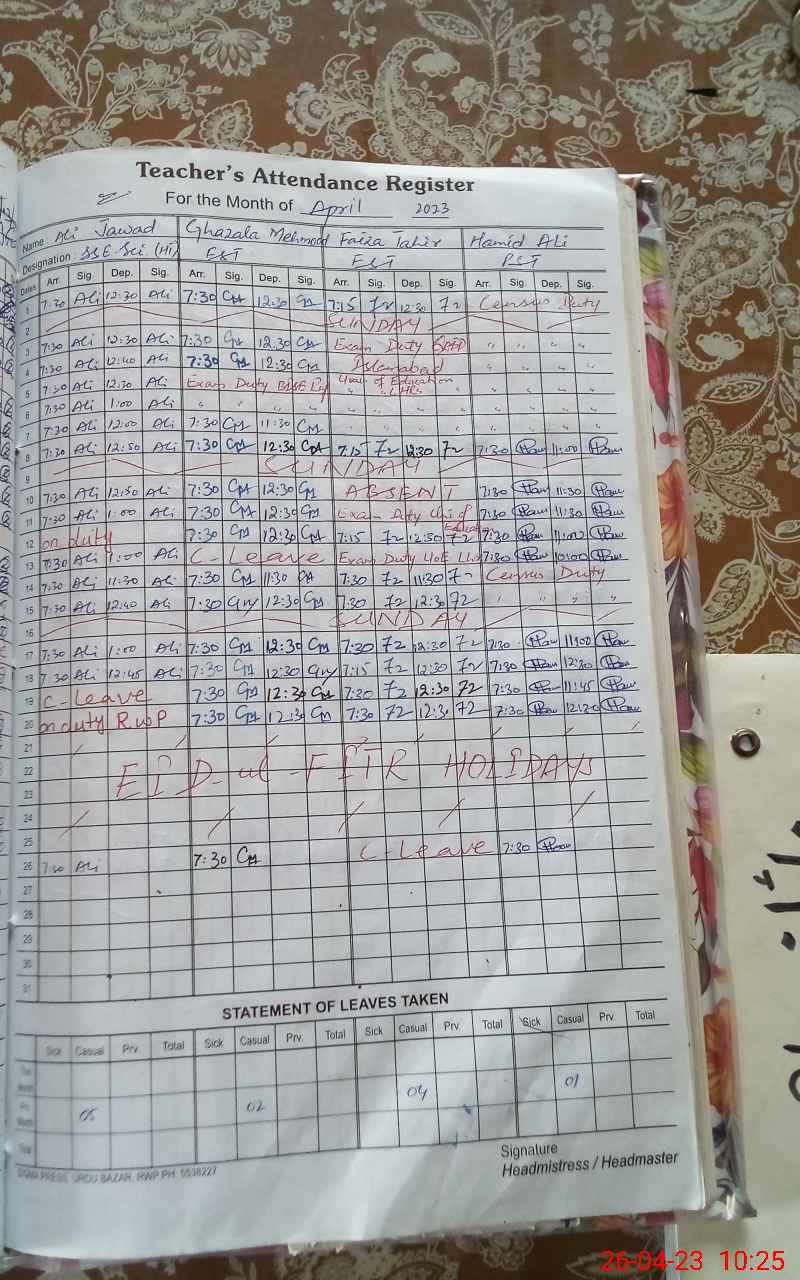 Teacher's Attendance Register
For the Month of April 2023
Name: Ali Jawad Ghazala Mehmood Faiza Tahir Hamid Ali
Designation: SSE Sci (Hi) EST EST PST
Dates Arr. Sig. Dep. Sig. Arr. Sig. Dep. Sig. Arr. Sig. Dep. Sig. Arr. Sig. Dep. Sig.
1 7:30 Ali 12:30 Ali 7:30 GM 12:30 GM 7:15 72 12:30 72 Census Duty
2 SUNDAY
3 7:30 Ali 12:30 Ali 7:30 GM 12:30 GM Exam Duty " " " "
4 7:30 Ali 12:40 Ali 7:30 GM 12:30 GM Islamabad " " " "
5 7:30 Ali 12:30 Ali Exam Duty BISE of Education " " " "
6 7:30 Ali 1:00 Ali " " " " " " " " " " " "
7 7:30 Ali 12:00 Ali 7:30 GM 11:30 GM " " " " " " " "
8 7:30 Ali 12:50 Ali 7:30 GM 12:30 GM 7:15 72 12:30 72 7:30 Ham 11:00 Ham
9 SUNDAY
10 7:30 Ali 12:50 Ali 7:30 GM 12:30 GM ABSENT 7:30 Ham 11:30 Ham
11 7:30 Ali 1:00 Ali 7:30 GM 12:30 GM Exam Duty Uni of Education 7:30 Ham 11:30 Ham
12 on duty 7:30 GM 12:30 GM 7:15 72 12:30 72 7:30 Ham 11:00 Ham
13 7:30 Ali 1:00 Ali C-Leave Exam Duty UoE 7:30 Ham 10:00 Ham
14 7:30 Ali 11:30 Ali 7:30 GM 11:30 GM 7:30 72 11:30 72 Census Duty
15 7:30 Ali 12:40 Ali 7:30 GM 12:30 GM 7:30 72 12:30 72 " " " "
16 SUNDAY
17 7:30 Ali 1:00 Ali 7:30 GM 12:30 GM 7:30 72 12:30 72 7:30 Ham 11:00 Ham
18 7:30 Ali 12:45 Ali 7:30 GM 12:30 GM 7:15 72 12:30 72 7:30 Ham 12:30 Ham
19 C-Leave 7:30 GM 12:30 GM 7:30 72 12:30 72 7:30 Ham 11:45 Ham
20 on duty RWP 7:30 GM 12:30 GM 7:30 72 12:30 72 7:30 Ham 12:30 Ham
21
22 EID-ul-FITR HOLIDAYS
23
24
25
26 7:30 Ali 7:30 GM C-Leave 7:30 Ham
27
28
29
30
31
STATEMENT OF LEAVES TAKEN
Sick Casual Prv. Total Sick Casual Prv. Total Sick Casual Prv. Total Sick Casual Prv. Total
05 02 04 01
Total
PRESS URDU BAZAR. RWP.PH: 5538227
Signature
Headmistress / Headmaster
26-04-23 10:25